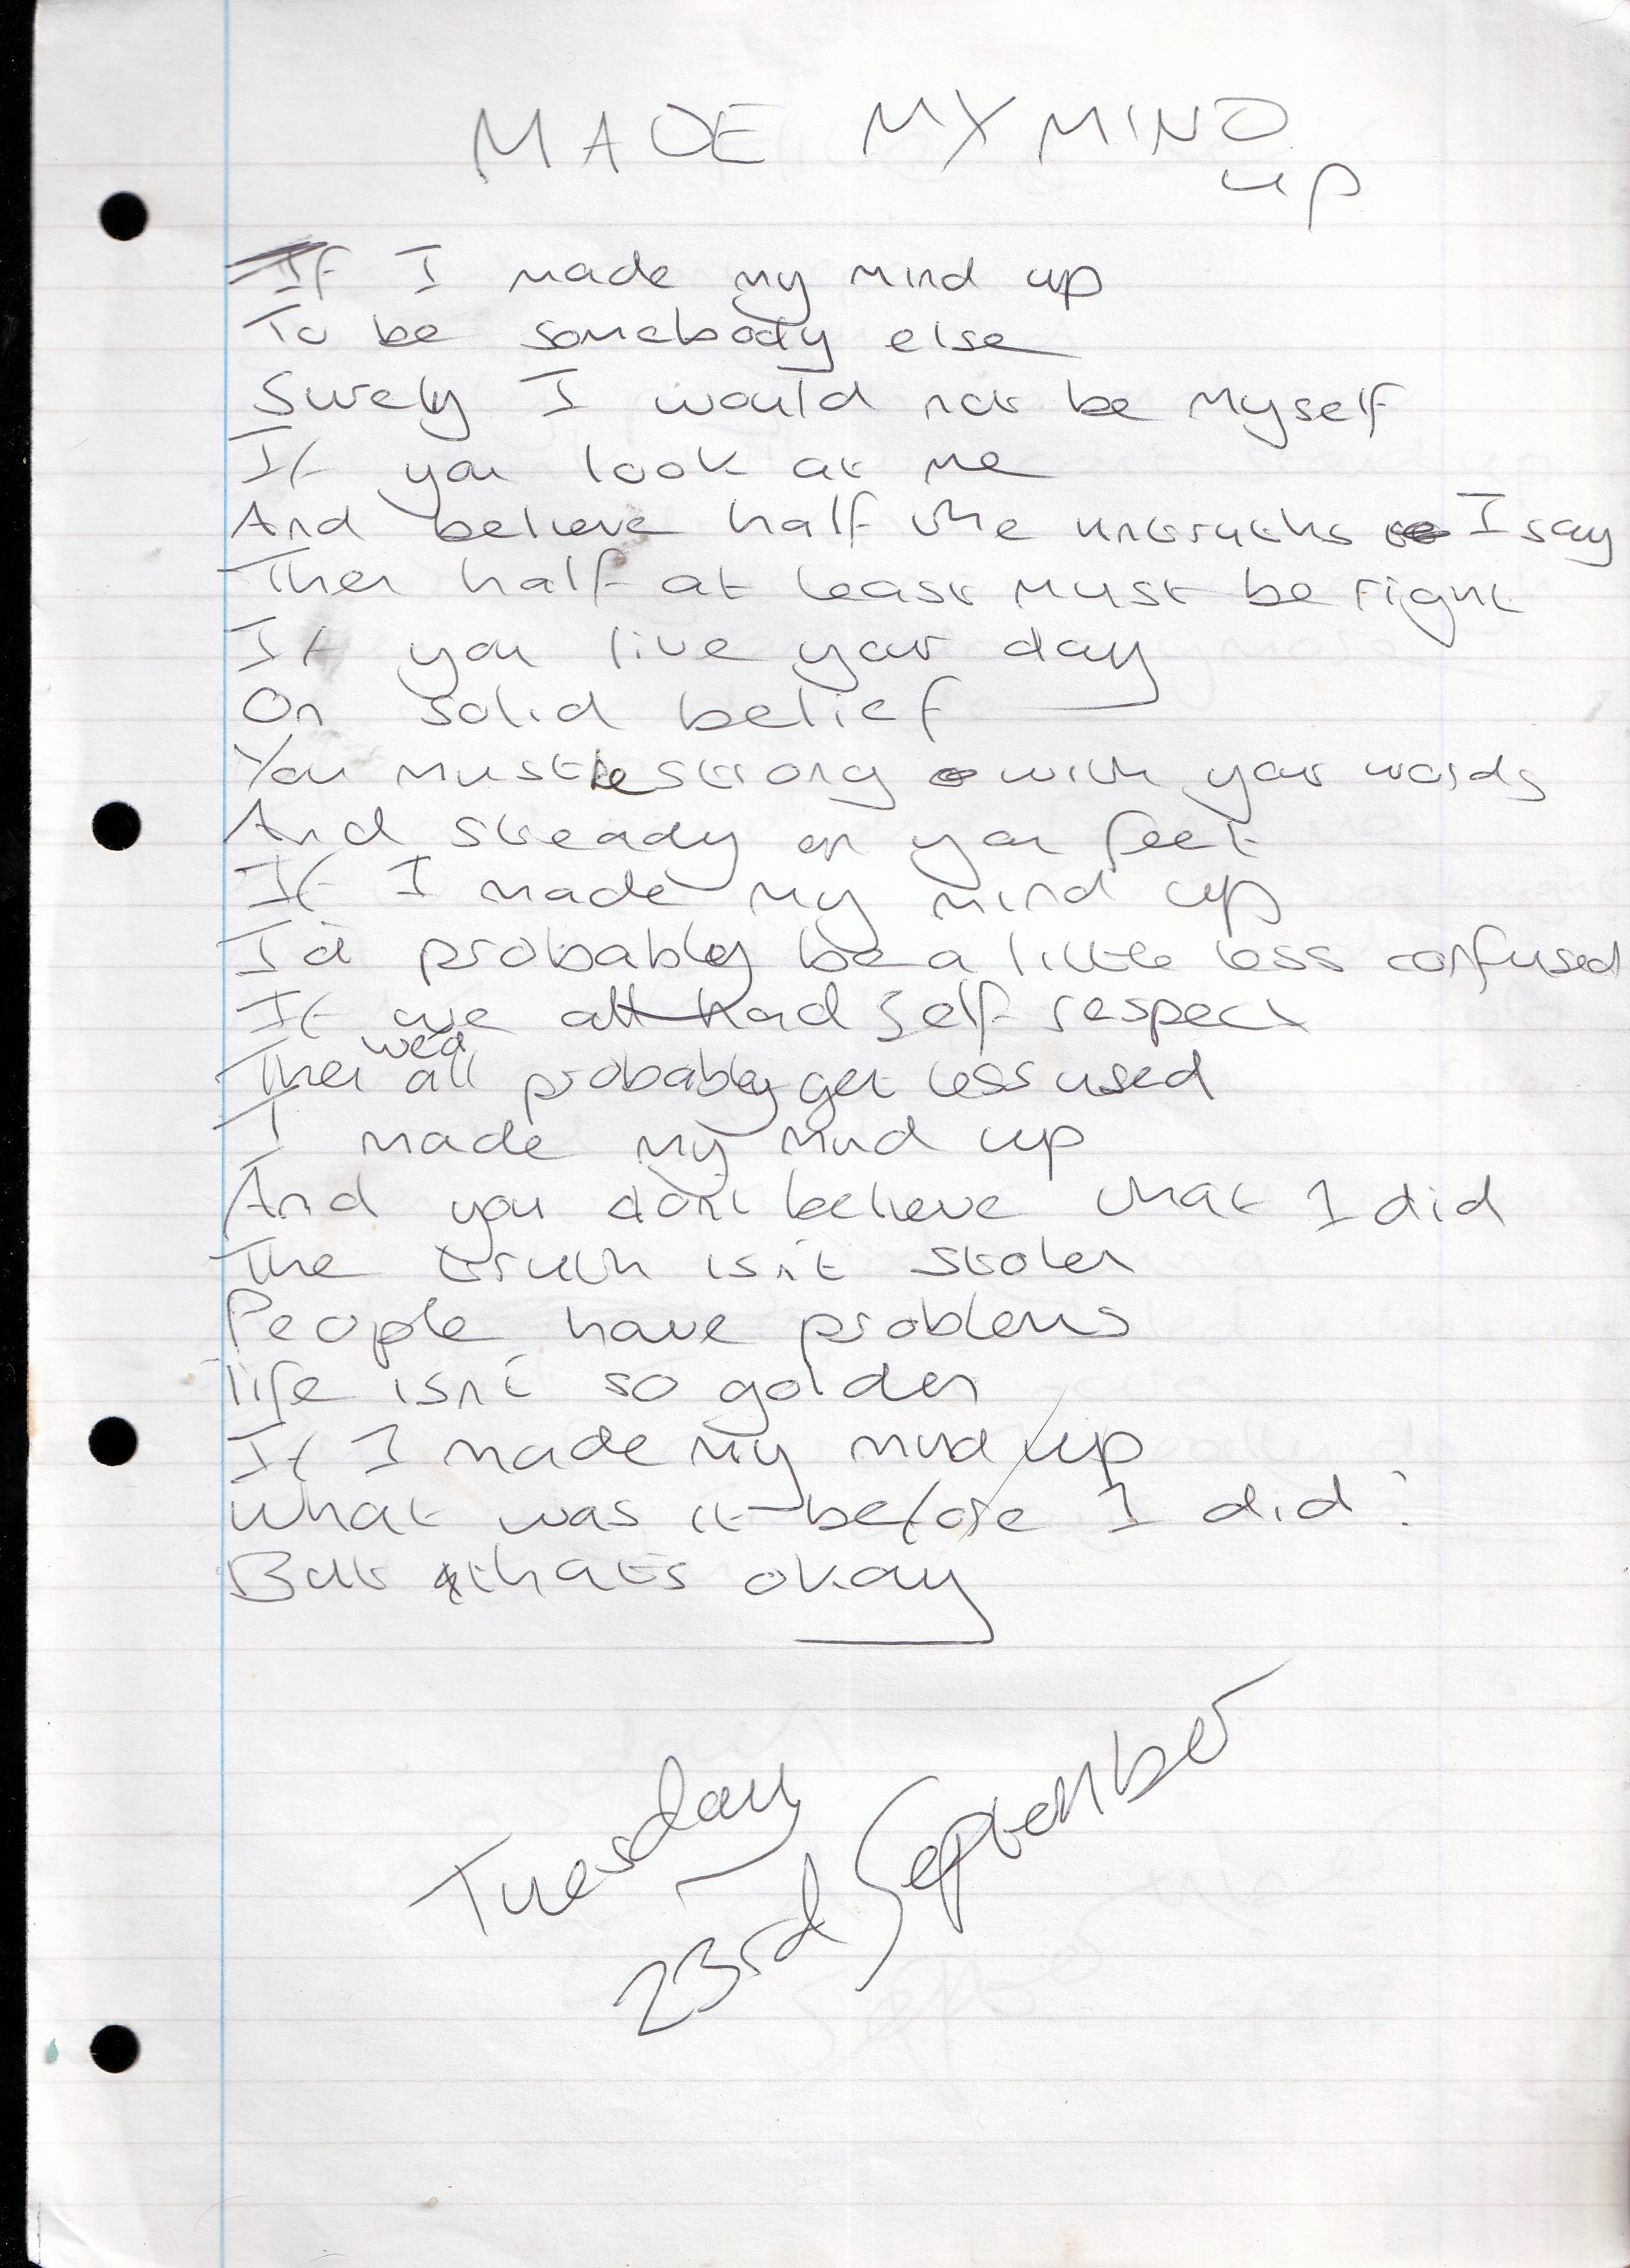 MADE MY MIND
up
If I made my mind up
To be somebody else
Surely I would not be myself
If you look at me
And believe half the untruths I say
Then half at least must be right
If you live your day
On solid belief
You must be strong with your words
And steady on your feet
If I made my mind up
I'd probably be a little less confused
If we all had self respect
we'd
Then all probably get less used
I made my mind up
And you don't believe what I did
The truth isn't stolen
People have problems
life isn't so golden
If I made my mind up
What was it before I did?
But thats okay
Tuesday
23rd September